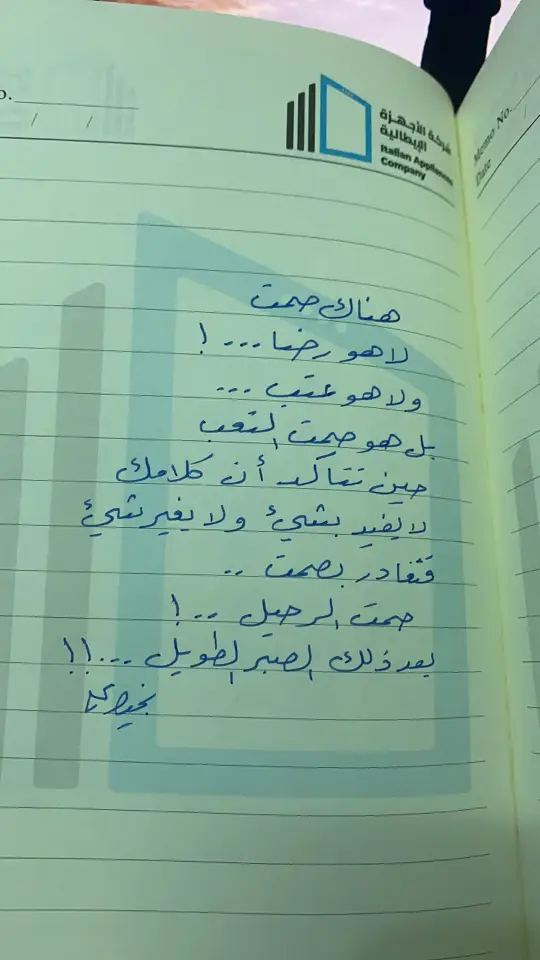 o.
/ /
شركة الأجهزة
الإيطالية
Italian Appliances
Company
Memo No.
Date
هناك صمت
لا هو رضا ... !
ولا هو عتب ...
بل هو صمت التعب
حين تتأكد أن كلامك
لا يفيد بشيء ولا يغير شيء
فتغادر بصمت ..
صمت الرحيل .. !
بعد ذلك الصبر الطويل ... !!